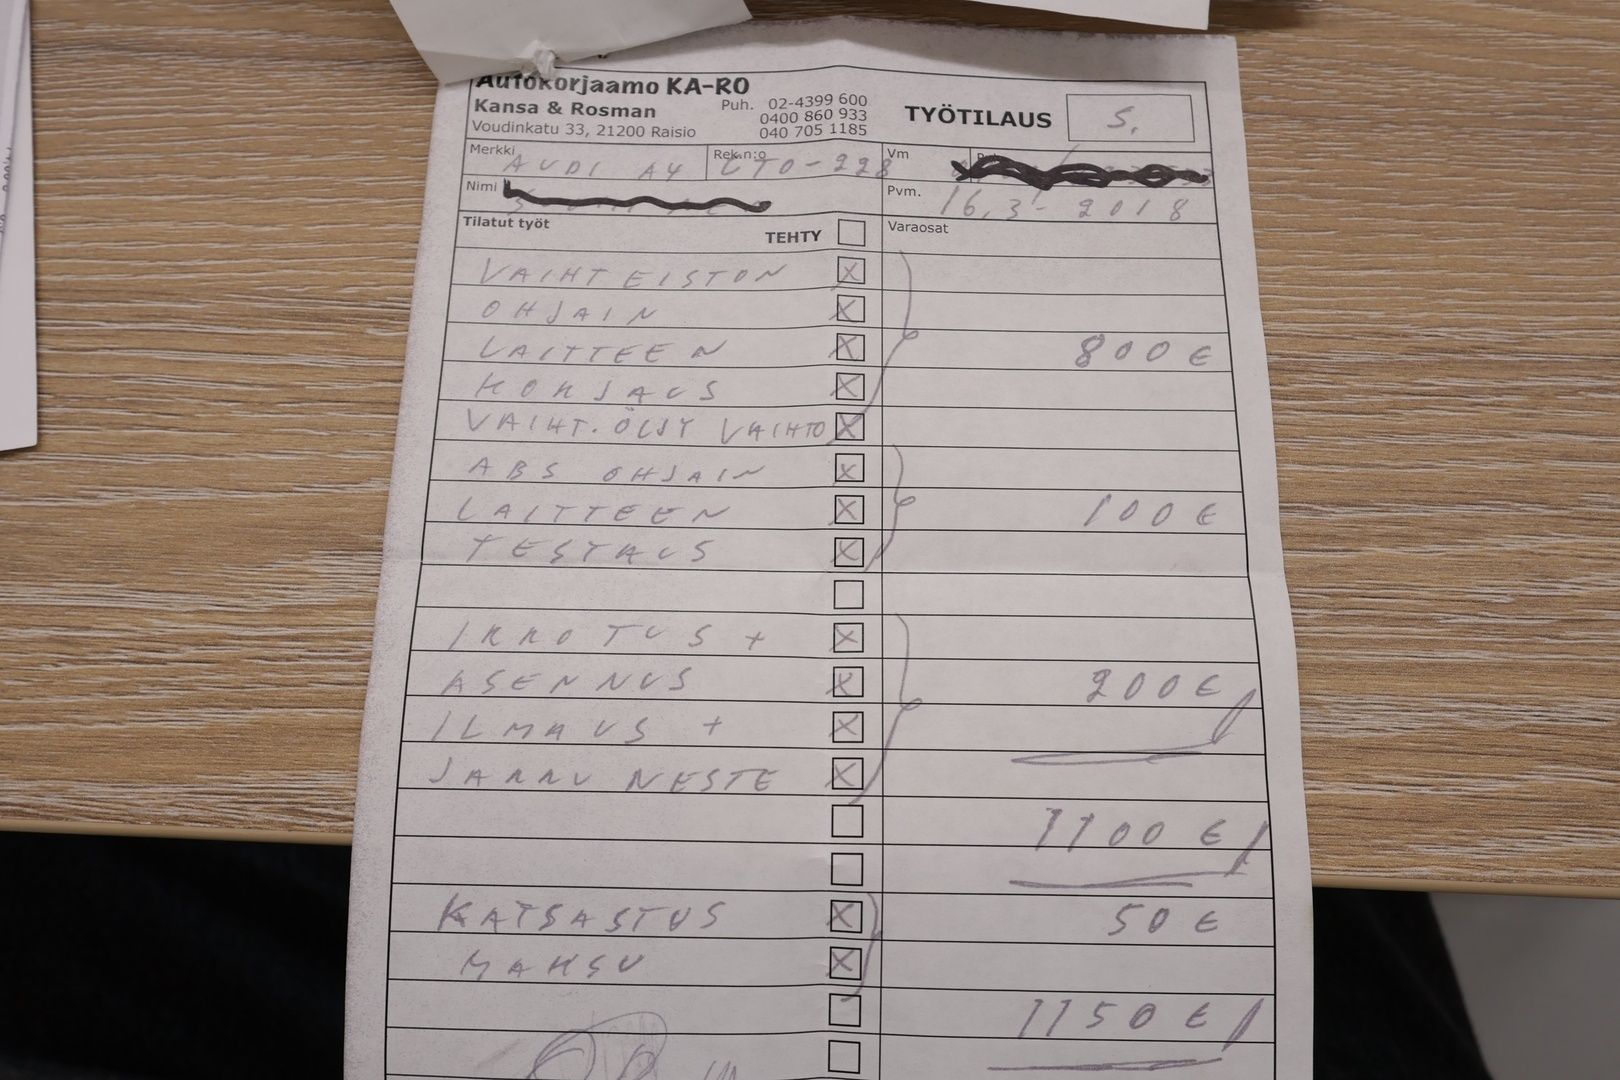 Autokorjaamo KA-RO
Kansa & Rosman
Voudinkatu 33, 21200 Raisio
Puh. 02-4399 600
0400 860 933
040 705 1185
TYÖTILAUS S.
Merkki AUDI A4 Rek.n:o CTO-228 Vm
Nimi Pvm. 16.3-2018
Tilatut työt TEHTY Varaosat
VAIHTEISTON X
OHJAIN X
LAITTEEN X 800 €
KORJAUS X
VAIHT. ÖLJY VAIHTO X
ABS OHJAIN X
LAITTEEN X 100 €
TESTAUS X
IRROTUS + X
ASENNUS X 200 €
ILMAUS + X
JARRU NESTE X
1100 €
KATSASTUS X 50 €
MAKSU X
1150 €